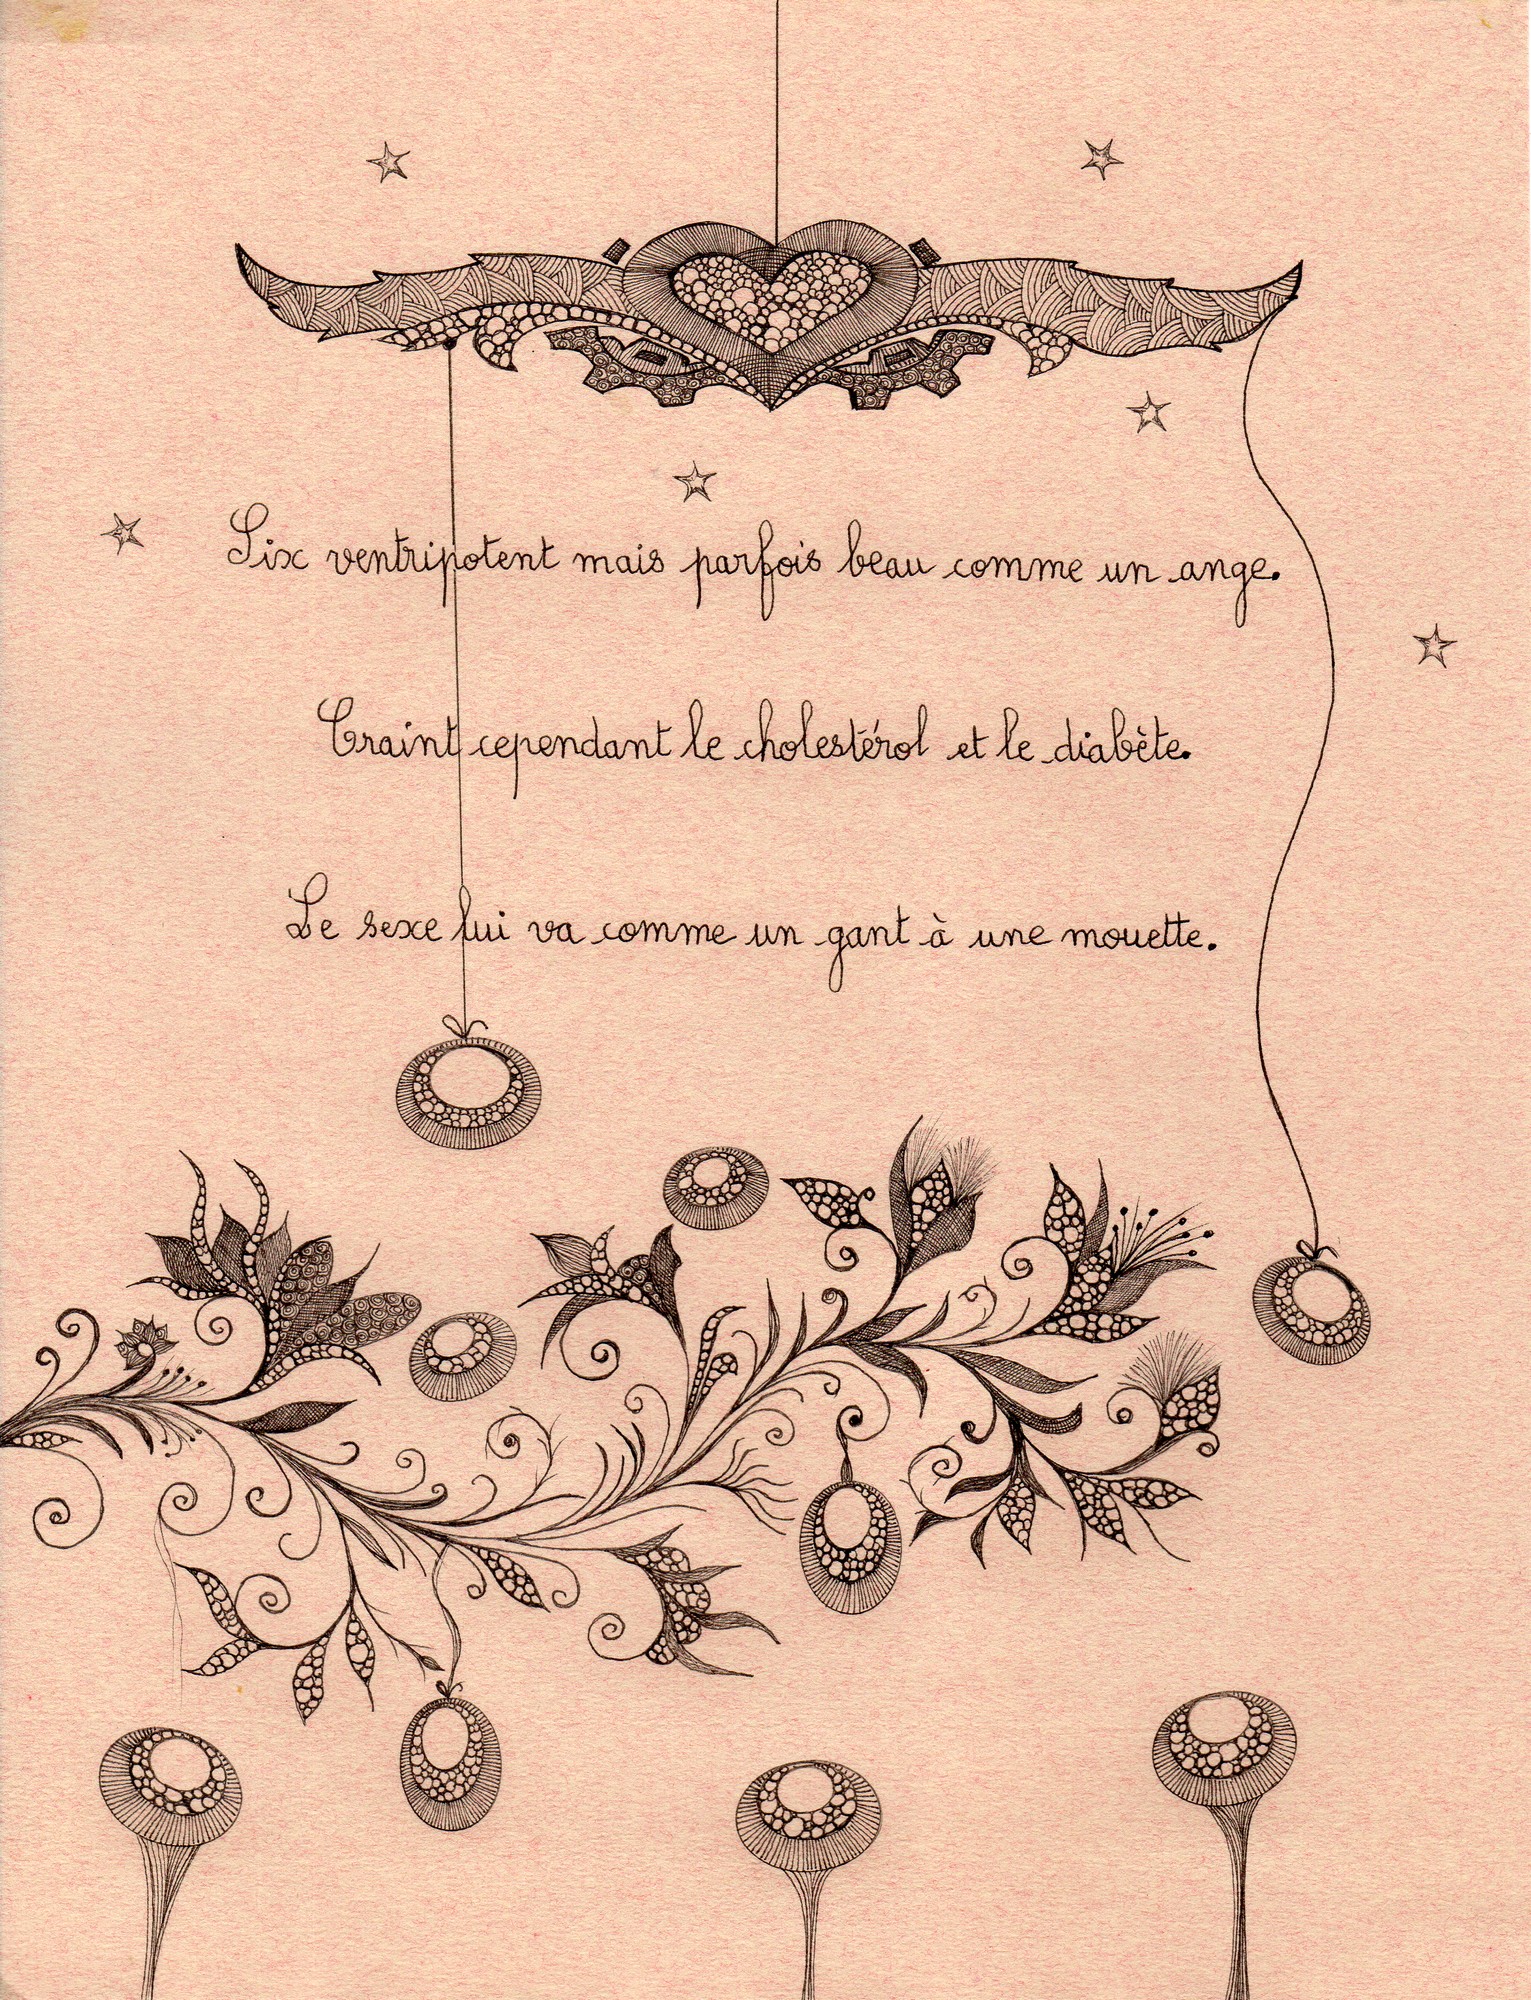 Six ventripotent mais parfois beau comme un ange.
Craint cependant le cholestérol et le diabète.
Le sexe lui va comme un gant à une mouette.